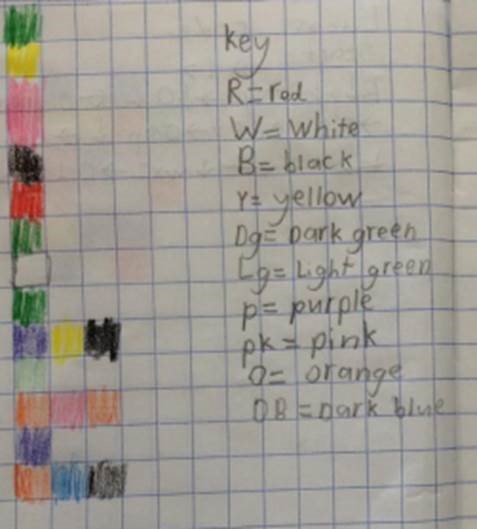 key
R=red
W=white
B=black
Y=yellow
Dg=Dark green
Lg=Light green
p=purple
pk=pink
O=orange
DB=Dark blue